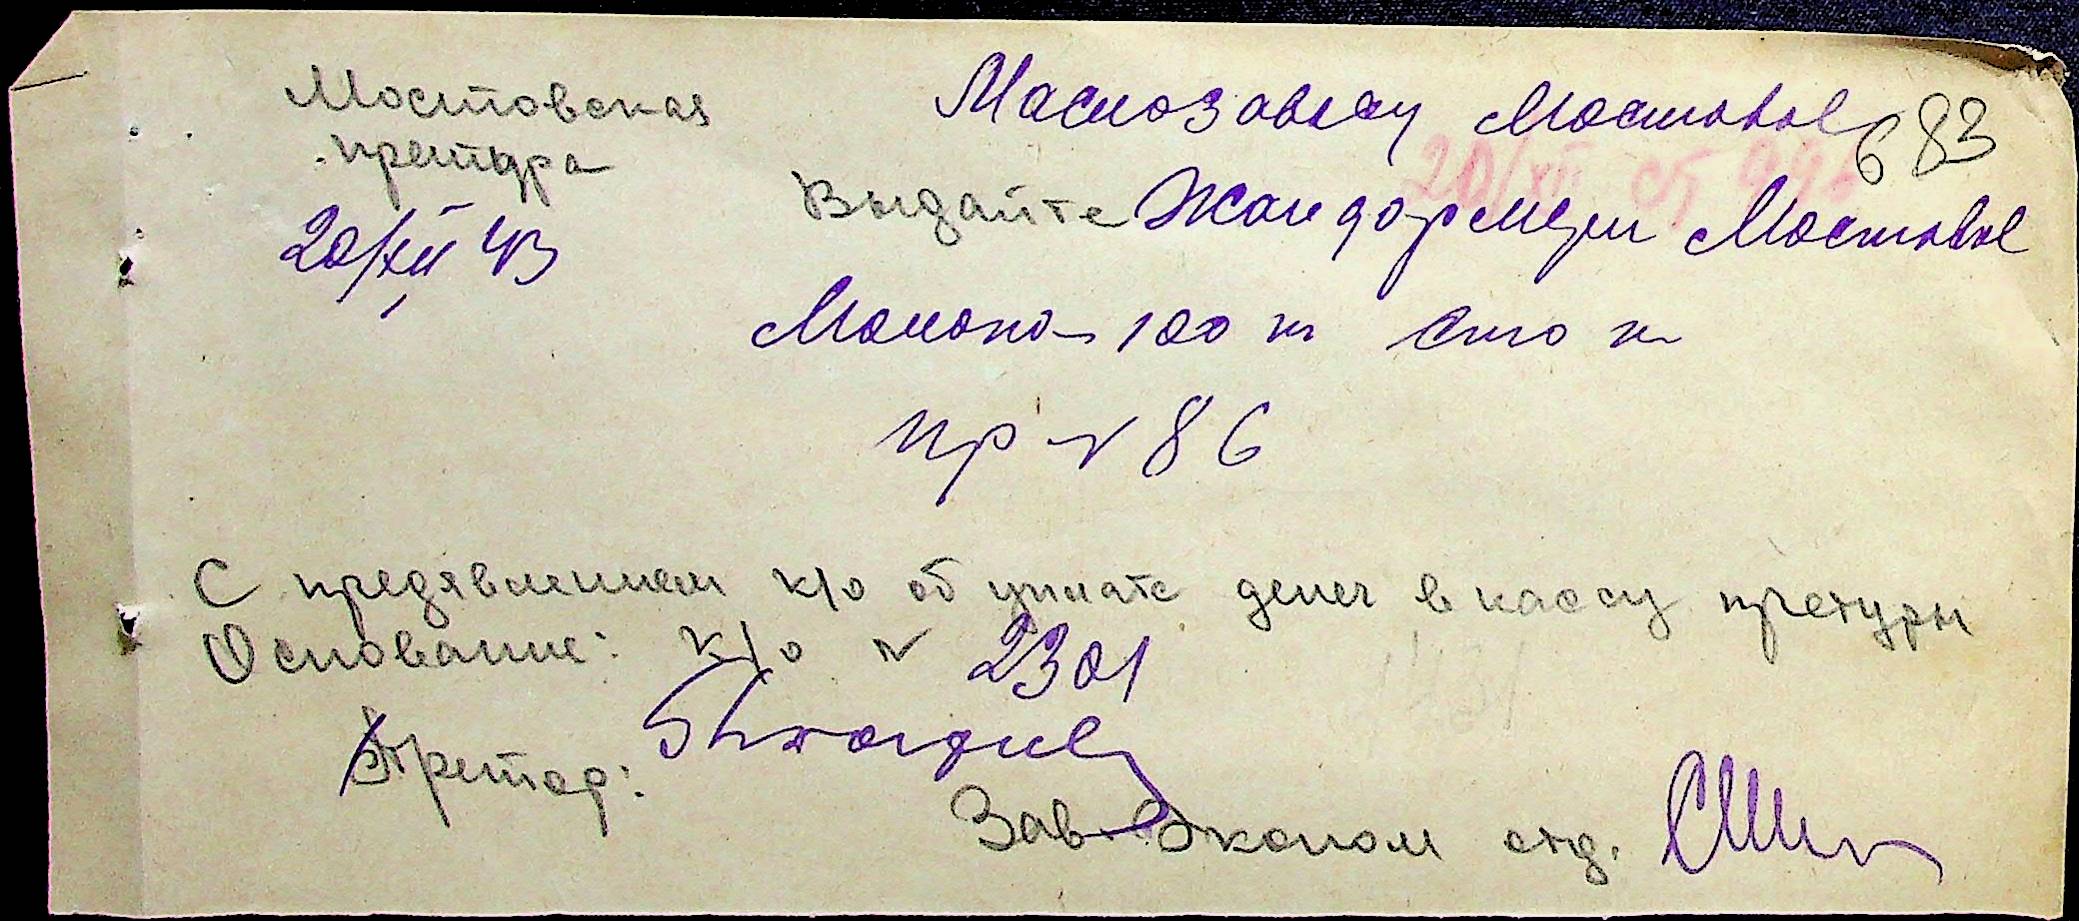 Мостовская
претура
20/XII 43
Маслозаводу Мостовое
683
20/XII
Выдайте Жандармерии Мостовое
Молока 100 кг сто кг
пр № 86
С предявлением к/о об уплате денег в кассу претуры
Основание: к/о № 2301
Претор:
Зав. Эконом отд.